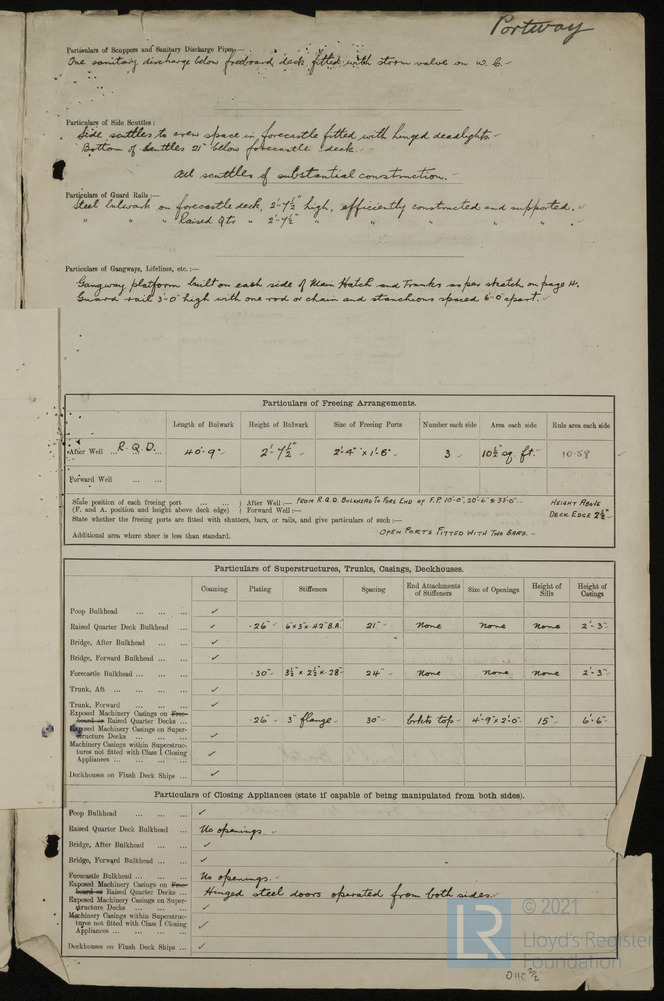 Portway
Particulars of Scuppers and Sanitary Discharge Pipes:—
One sanitary discharge below freeboard deck fitted with storm valve on W.C.
Particulars of Side Scuttles:
Side scuttles to crew space in forecastle fitted with hinged deadlights
Bottom of scuttles 21" below forecastle deck.
All scuttles of substantial construction.
Particulars of Guard Rails:—
Steel bulwark on forecastle deck, 2'-7½" high, efficiently constructed and supported.
" " " Raised Qtr " 2'-7½" " " " " "
Particulars of Gangways, Lifelines, etc.:—
Gangway platform built on each side of Main Hatch and Trunks as per sketch on page 4.
Guard rail 3'-0" high with one rod or chain and stanchions spaced 6'-0" apart.
Particulars of Freeing Arrangements.
Length of Bulwark Height of Bulwark Size of Freeing Ports Number each side Area each side Rule area each side
After Well ... R.Q.D. ... 40'-9" 2'-7½" 2'-4" × 1'-6" 3 10½ sq. ft. 10.59
Forward Well ... ...
State position of each freeing port ... ... ... After Well:— FROM R.Q.D. BULKHEAD TO FORE END OF F.P. 10'-0", 20'-6" & 33'-0" HEIGHT ABOVE
(F. and A. position and height above deck edge) Forward Well:— DECK EDGE 2½"
State whether the freeing ports are fitted with shutters, bars, or rails, and give particulars of such:—
Additional area where sheer is less than standard. OPEN PORTS FITTED WITH TWO BARS.
Particulars of Superstructures, Trunks, Casings, Deckhouses.
Coaming Plating Stiffeners Spacing End Attachments of Stiffeners Size of Openings Height of Sills Height of Casings
Poop Bulkhead ... ... ... ✓
Raised Quarter Deck Bulkhead ... ✓ .26" 6" × 3" × .42" B.A. 21" none none none 2'-3"
Bridge, After Bulkhead ... ... ✓
Bridge, Forward Bulkhead ... ... ✓
Forecastle Bulkhead ... ... .30" 3½" × 2½" × .28" 24" none none none 2'-3"
Trunk, Aft ... ... ... ✓
Trunk, Forward ... ... ... ✓
Exposed Machinery Casings on Free-
board or Raised Quarter Decks ... .26" 3" flange 30" bkts top 4'-9" × 2'-0" 15" 6'-6"
Exposed Machinery Casings on Super-
structure Decks ... ... ... ✓
Machinery Casings within Superstruc-
tures not fitted with Class I Closing
Appliances ... ... ... ✓
Deckhouses on Flush Deck Ships ... ✓
Particulars of Closing Appliances (state if capable of being manipulated from both sides).
Poop Bulkhead ... ... ... ✓
Raised Quarter Deck Bulkhead ... No openings
Bridge, After Bulkhead ... ... ✓
Bridge, Forward Bulkhead ... ... ✓
Forecastle Bulkhead ... ... ... No openings.
Exposed Machinery Casings on Free-
board or Raised Quarter Decks ... Hinged steel doors operated from both sides.
Exposed Machinery Casings on Super-
structure Decks ... ... ... ✓
Machinery Casings within Superstruc-
tures not fitted with Class I Closing
Appliances ... ... ... ✓
Deckhouses on Flush Deck Ships ... ✓
LR
© 2021
Lloyd's Register
Foundation